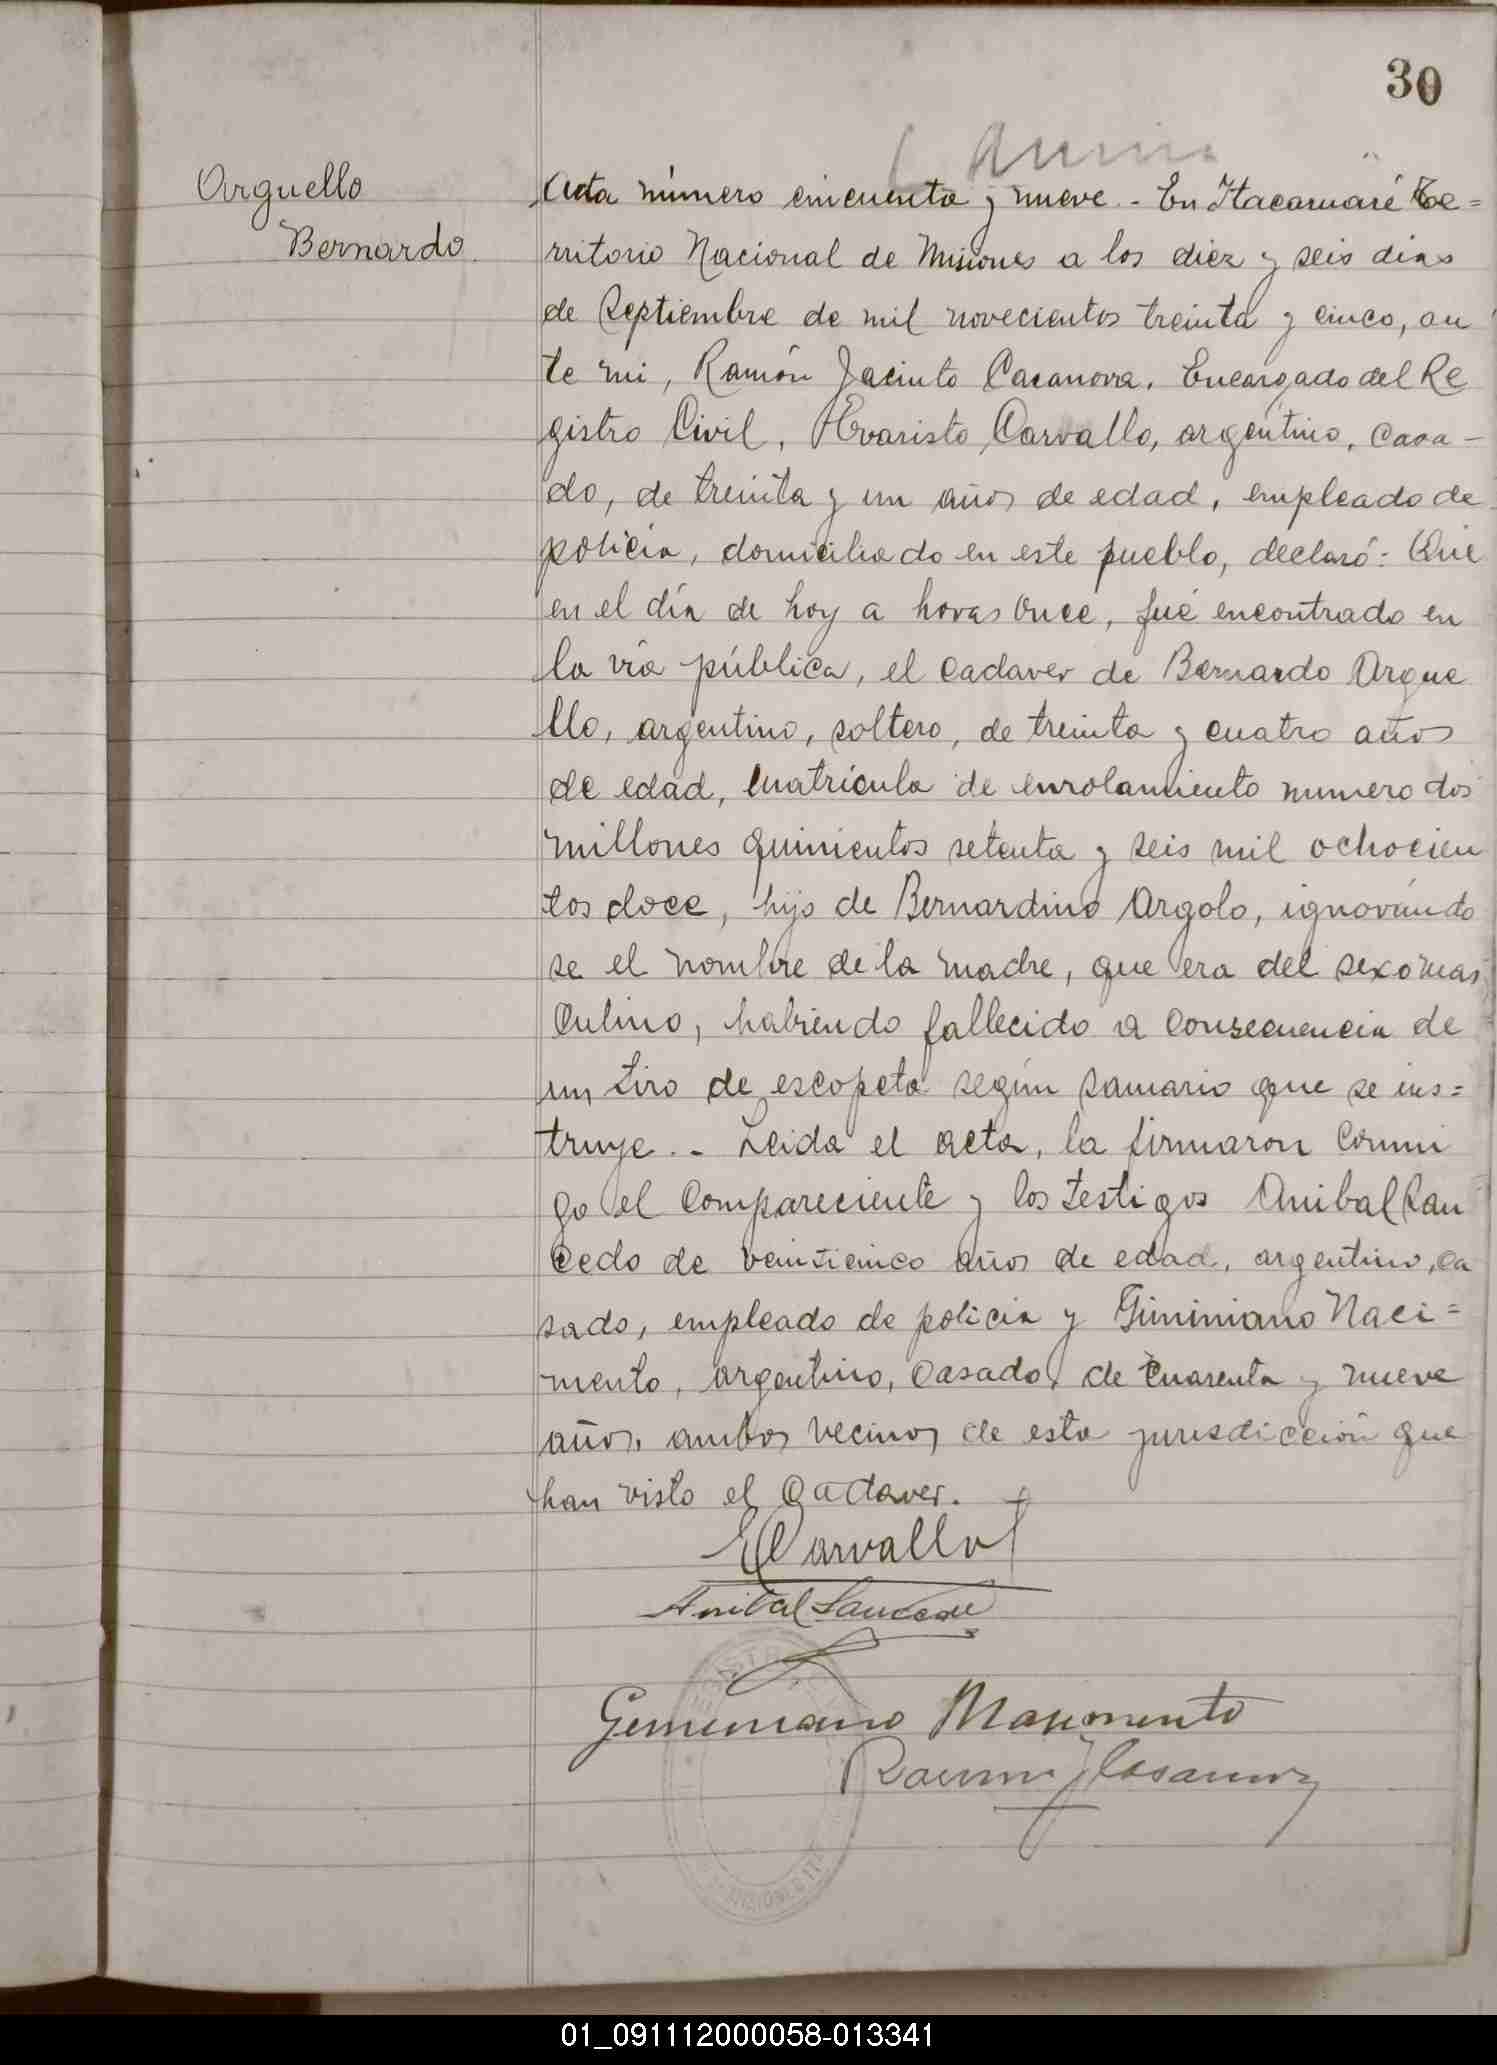 30
Arguello
Bernardo.
Acta número cincuenta y nueve.- En Itacaruaré Te=
rritorio Nacional de Misiones a los diez y seis dias
de Septiembre de mil novecientos treinta y cinco, an
te mi, Ramón Jacinto Casanova, Encargado del Re
gistro Civil, Evaristo Carvallo, argentino, casa-
do, de treinta y un años de edad, empleado de
policía, domiciliado en este pueblo, declaró: Que
en el día de hoy a horas once, fué encontrado en
la vía pública, el cadaver de Bernardo Argue
llo, argentino, soltero, de treinta y cuatro años
de edad, matrícula de enrolamiento numero dos
millones quinientos setenta y seis mil ochocien
tos doce, hijo de Bernardino Argolo, ignorándo
se el nombre de la madre, que era del sexo mas
culino, habiendo fallecido a consecuencia de
un tiro de escopeta según sumario que se ins=
truye.- Leida el acta, la firmaron conmi
go el compareciente y los testigos Anibal Sau
cedo de veinticinco años de edad, argentino, ca
sado, empleado de policia y Giminiano Naci=
mento, argentino, casado, de cuarenta y nueve
años, ambos vecinos de esta jurisdicción que
han visto el cadaver.
E Carvallo
Anibal Saucedo
Gemeniano Nasimento
Ramon J Casanova
01_091112000058-013341